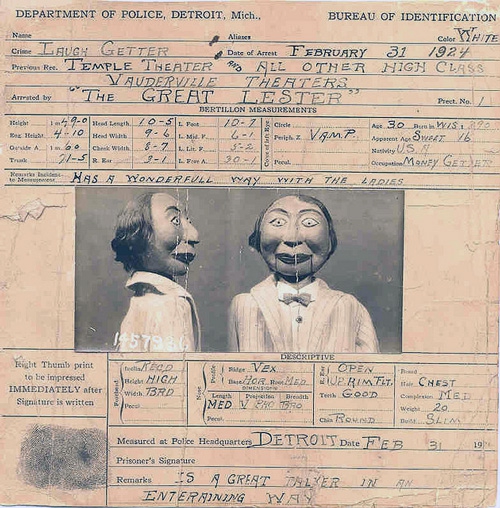 DEPARTMENT OF POLICE, DETROIT, Mich., BUREAU OF IDENTIFICATION
Name Aliases Color WHITE
Crime LAUGH GETTER Date of Arrest FEBRUARY 31 1924
Previous Rec. TEMPLE THEATER AND ALL OTHER HIGH CLASS
VAUDERVILLE THEATERS
Arrested by "THE GREAT LESTER" Prect. No. 1
BERTILLON MEASUREMENTS
Height 1 m 49-0 Head Length 10-5 L. Foot 10-7 Circle Age 30 Born in WIS
Eng. Height 4-10 Head Width 9-6 L. Mid. F. 6-1 Periph. Z VAMP. Apparent Age SWEET 16
Outside A 1 m 60 Cheek Width 8-7 L. Lit. F. 5-2 Nativity U.S.A
Trunk 71-5 R. Ear 9-1 L. Fore A. 30-1 Pecul. Occupation MONEY GETTER
Remarks Incident to Measurement HAS A WONDERFULL WAY WITH THE LADIES
DESCRIPTIVE
Right Thumb print
to be impressed
IMMEDIATELY after
Signature is written
Inclin. RECD Ridge VEX OPEN Beard
Height HIGH Base HOR Root MED UP.RIM.FLT. Hair CHEST
Width BRD DIMENSIONS Teeth GOOD Complexion MED
Pecul. Length Projection Breadth Weight 20
MED BRD Chin ROUND Build SLIM
Measured at Police Headquarters DETROIT Date FEB 31 19
Prisoner's Signature
Remarks IS A GREAT TALKER IN AN
ENTERAINING WAY